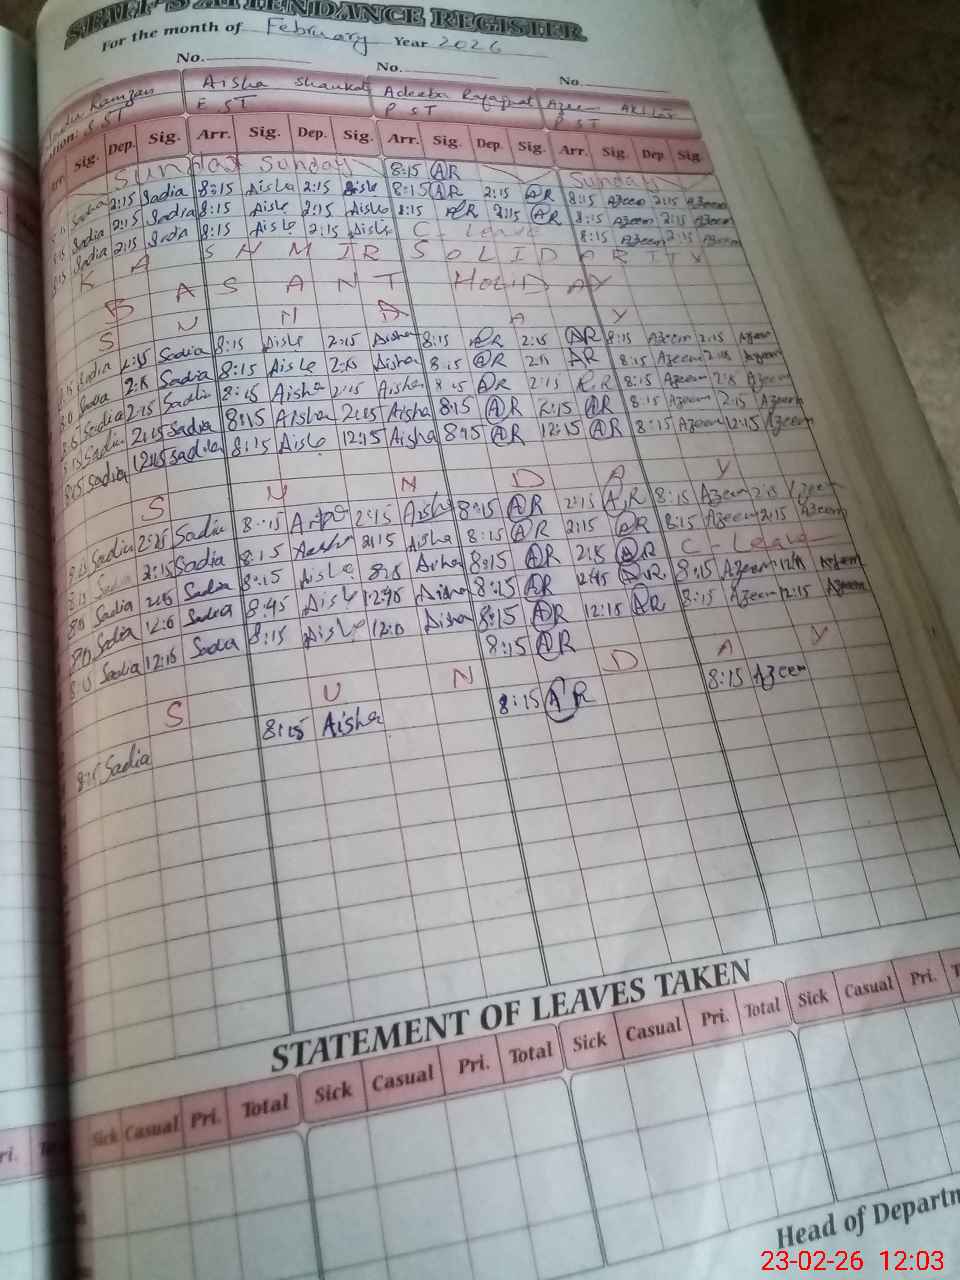 STAFF'S ATTENDANCE REGISTER
For the month of February Year 2026
No. No. No.
Ramzan Aisha Shaukat Adeeba Azeem
EST PST PST
Arr. Sig. Dep. Sig. Arr. Sig. Dep. Sig. Arr. Sig. Dep. Sig. Arr. Sig. Dep. Sig.
Sunday Sunday 8:15 AR Sunday
Sadia 2:15 Sadia 8:15 Aisha 2:15 Aisha 8:15 AR 2:15 AR 8:15 Azeem 2:15 Azeem
Sadia 2:15 Sadia 8:15 Aisha 2:15 Aisha 8:15 AR 2:15 AR 8:15 Azeem 2:15 Azeem
Sadia 2:15 Sadia 8:15 Aisha 2:15 Aisha C. Leave 8:15 Azeem 2:15 Azeem
K A S H M I R S O L I D A R I T Y
B A S A N T HOLIDAY
S U N D A Y
Sadia 2:15 Sadia 8:15 Aisha 2:15 Aisha 8:15 AR 2:15 AR 8:15 Azeem 2:15 Azeem
2:15 Sadia 8:15 Aisha 2:15 Aisha 8:15 AR 2:15 AR 8:15 Azeem 2:15 Azeem
Sadia 2:15 Sadia 8:15 Aisha 2:15 Aisha 8:15 AR 2:15 AR 8:15 Azeem 2:15 Azeem
8:15 Sadia 2:15 Sadia 8:15 Aisha 2:15 Aisha 8:15 AR 2:15 AR 8:15 Azeem 2:15 Azeem
8:15 Sadia 12:15 Sadia 8:15 Aisha 12:15 Aisha 8:15 AR 12:15 AR 8:15 Azeem 12:15 Azeem
S U N D A Y
8:15 Sadia 2:15 Sadia 8:15 2:15 Aisha 8:15 AR 2:15 AR 8:15 Azeem 2:15 Azeem
8:15 Sadia 2:15 Sadia 8:15 Aisha 2:15 Aisha 8:15 AR 2:15 AR 8:15 Azeem 2:15 Azeem
Sadia Sadia 8:15 Aisha Aisha 8:15 AR 2:15 AR C. Leave
Sadia Sadia 8:45 Aisha 12:45 Aisha 8:15 AR 12:45 AR 8:15 Azeem Azeem
Sadia 12:15 Sadia 8:15 Aisha Aisha 8:15 AR 12:15 AR 8:15 Azeem 12:15 Azeem
8:15 AR
S U N D A Y
8:15 Sadia 8:15 Aisha 8:15 AR 8:15 Azeem
STATEMENT OF LEAVES TAKEN
Sick Casual Pri. Total Sick Casual Pri. Total Sick Casual Pri. Total Sick Casual Pri.
Head of Departm
23-02-26 12:03